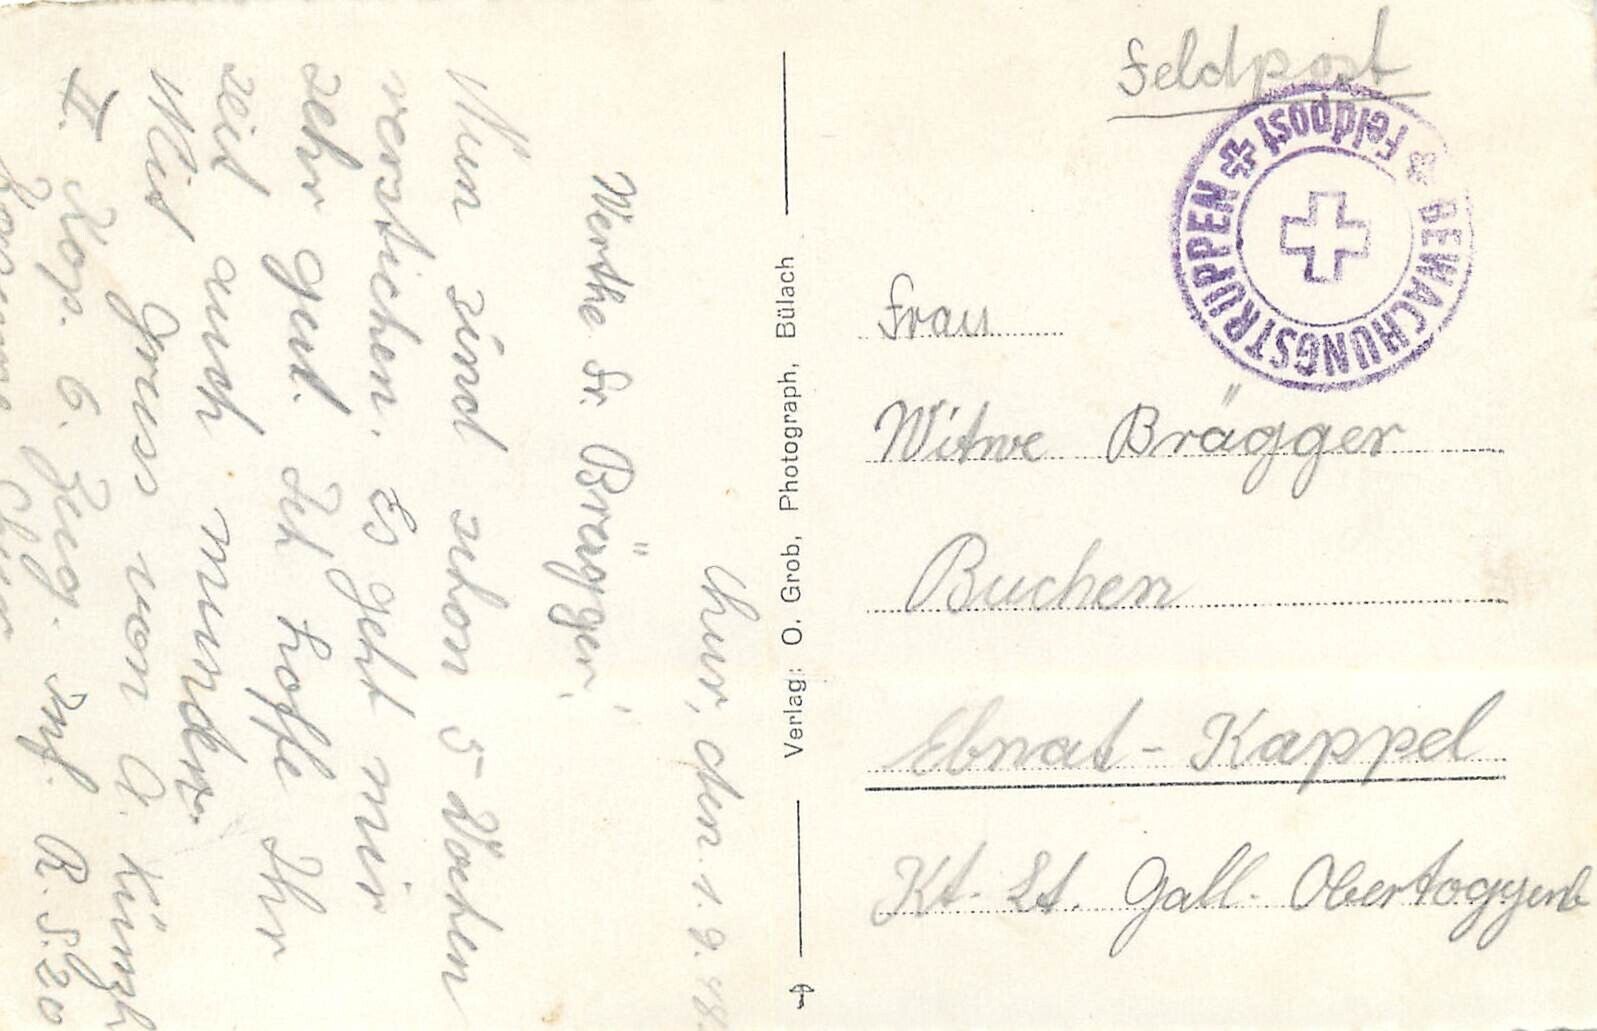 Chur, den 1. 9. 48.
Werthe Fr. Brägger!
Nun sind schon 5 Wochen
verstichen. Es geht mir
sehr gut. Ich hoffe Ihr
seid auch munder.
Mit Gruss von A.
II. Kop. 6. Zug. Inf. R. S. 220
Kaserne Chur
Verlag: O. Grob, Photograph, Bülach
Feldpost
BEWACHUNGSTRUPPEN
Feldpost
Frau
Witwe Brägger
Buchen
Ebnat-Kappel
Kt. St. Gall. Obertoggenb